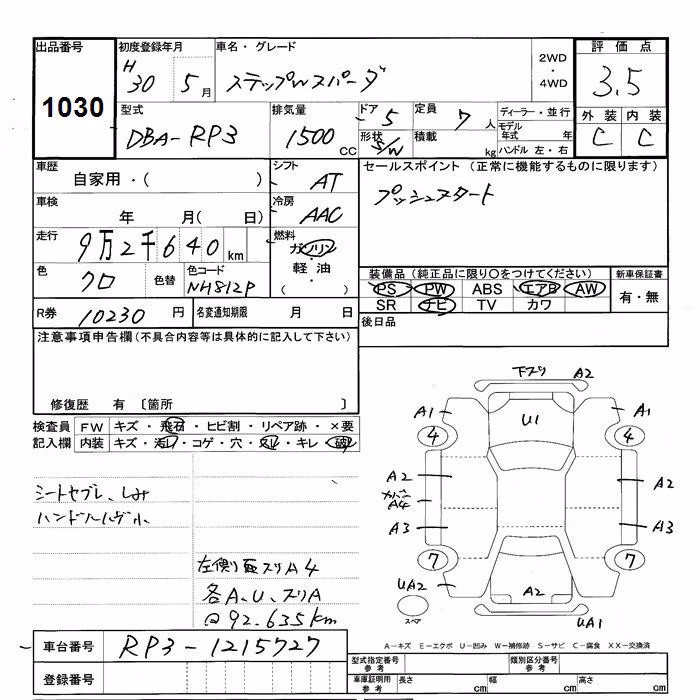 出品番号 初度登録年月 車名・グレード 2WD・4WD 評価点
1030 H30 5月 ステップWスパーダ 3.5
型式 排気量 ドア 定員 ディーラー・並行 外装 内装
DBA-RP3 1500CC 5 7人 モデル年式 年 C C
形状 S/W 積載 kg ハンドル 左・右
車歴 シフト セールスポイント (正常に機能するものに限ります)
自家用・( ) AT プッシュスタート
車検 冷房
年 月( 日) AAC
走行 燃料
9万2千640km ガソリン
軽油
( ・ )
色 色替 色コード 装備品(純正品に限り○をつけてください) 新車保証書
クロ NH812P PS PW ABS エアB AW 有・無
SR ナビ TV カワ
R券 10230円 名変通知期限 月 日 後日品
注意事項申告欄(不具合内容等は具体的に記入して下さい)
修復歴 有 〔箇所 〕
検査員 FW キズ・飛石・ヒビ割・リペア跡・×要
記入欄 内装 キズ・汚レ・コゲ・穴・スレ・キレ・破レ
シートセブレ、しみ
左側面スリA4
各A、U、スリA
@92.635km
下スリ A2
A1 U1 A1
4 4
A2 A2
A4
A3 A3
7 7
UA2 A2
スペア UA1
車台番号 RP3-1215727
登録番号
A-キズ E-エクボ U-凹み W-補修跡 S-サビ C-腐食 XX-交換済
型式指定番号 参考 類別区分番号 参考
車庫証明用 参考 長さ cm 幅 cm 高さ cm